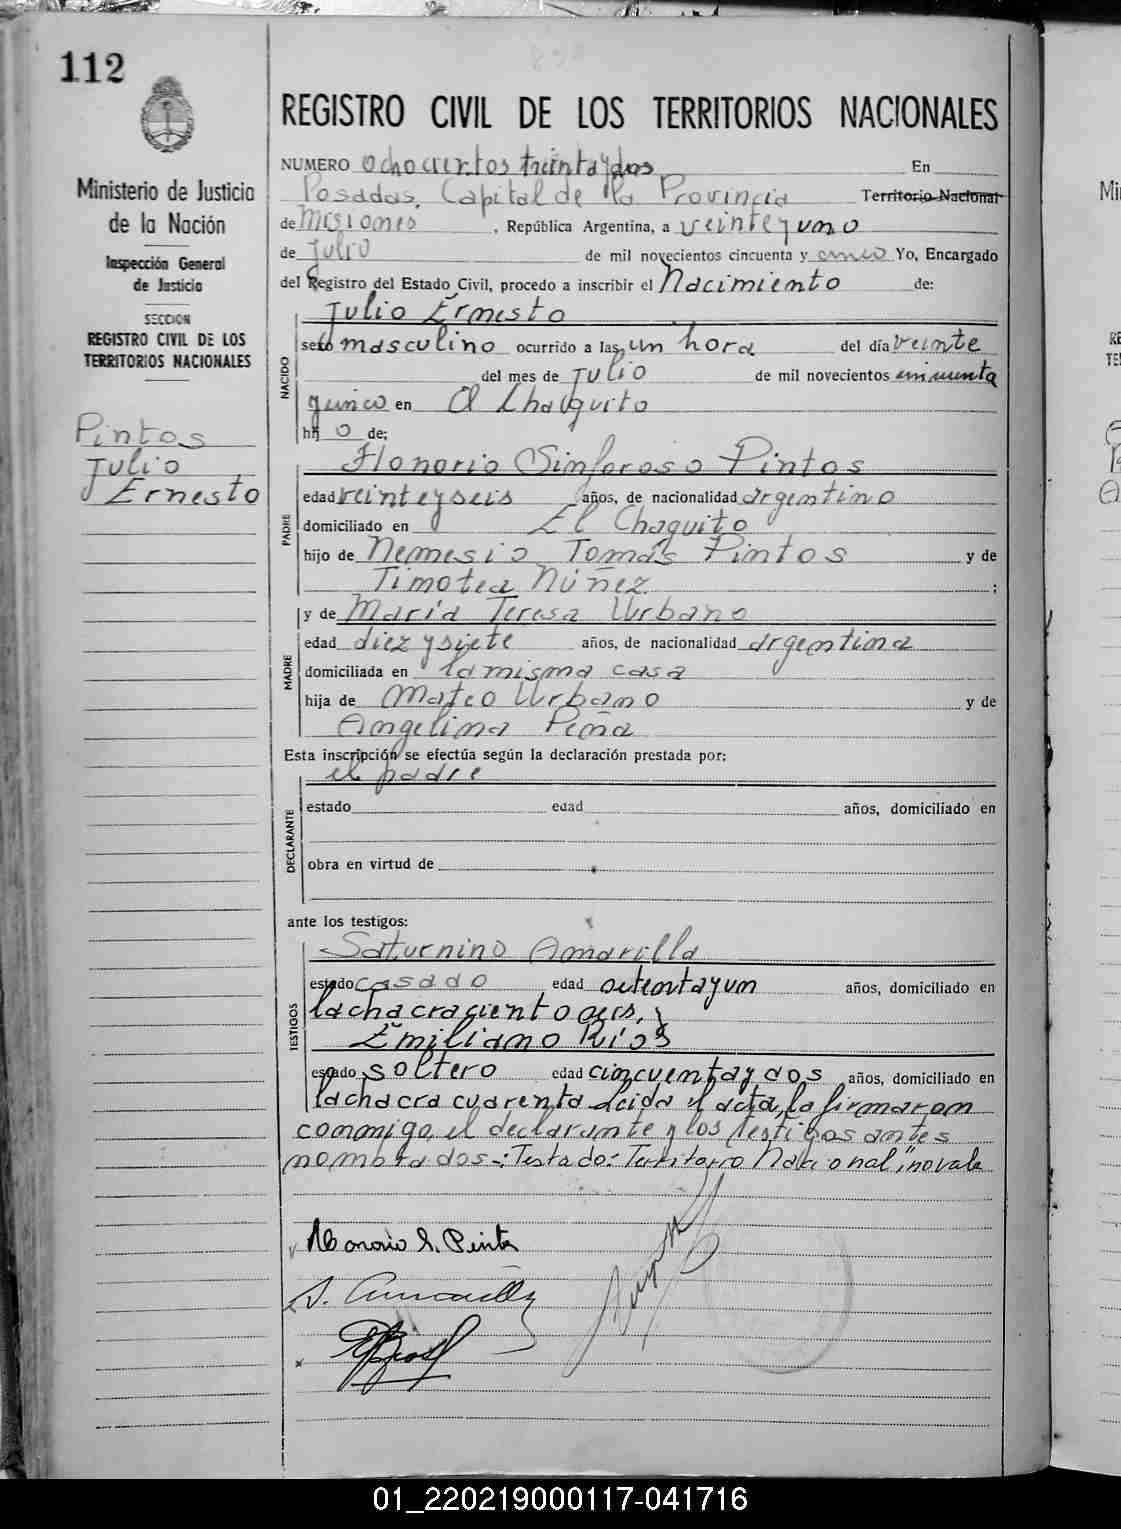 112
Ministerio de Justicia
de la Nación
Inspección General
de Justicia
SECCION
REGISTRO CIVIL DE LOS
TERRITORIOS NACIONALES
Pintos
Julio
Ernesto
REGISTRO CIVIL DE LOS TERRITORIOS NACIONALES
NUMERO Ochocientos treinta y dos En
Posadas, Capital de la Provincia Territorio Nacional
de Misiones, República Argentina, a veinte y uno
de Julio de mil novecientos cincuenta y cinco Yo, Encargado
del Registro del Estado Civil, procedo a inscribir el Nacimiento de:
Julio Ernesto
NACIDO
sexo masculino ocurrido a las un hora del día veinte
del mes de Julio de mil novecientos cincuenta
y cinco en El Chaquito
hij o de:
PADRE
Honorio Sinforoso Pintos
edad veinte y seis años, de nacionalidad argentino
domiciliado en El Chaquito
hijo de Nemesio Tomás Pintos y de
Timotea Núñez ;
MADRE
y de María Teresa Urbano
edad diez y siete años, de nacionalidad argentina
domiciliada en la misma casa
hija de Mateo Urbano y de
Angelina Peña
Esta inscripción se efectúa según la declaración prestada por:
el padre
DECLARANTE
estado edad años, domiciliado en
obra en virtud de
ante los testigos:
TESTIGOS
Saturnino Amarilla
estado casado edad años, domiciliado en
la chacra ciento
Emiliano Ríos
estado soltero edad cincuenta y dos años, domiciliado en
la chacra cuarenta Leida el acta, la firmaron
conmigo, el declarante y los testigos antes
nombrados-: Testado: Territorio Nacional", no vale
Honorio S. Pintos
S. Amarilla
01_220219000117-041716